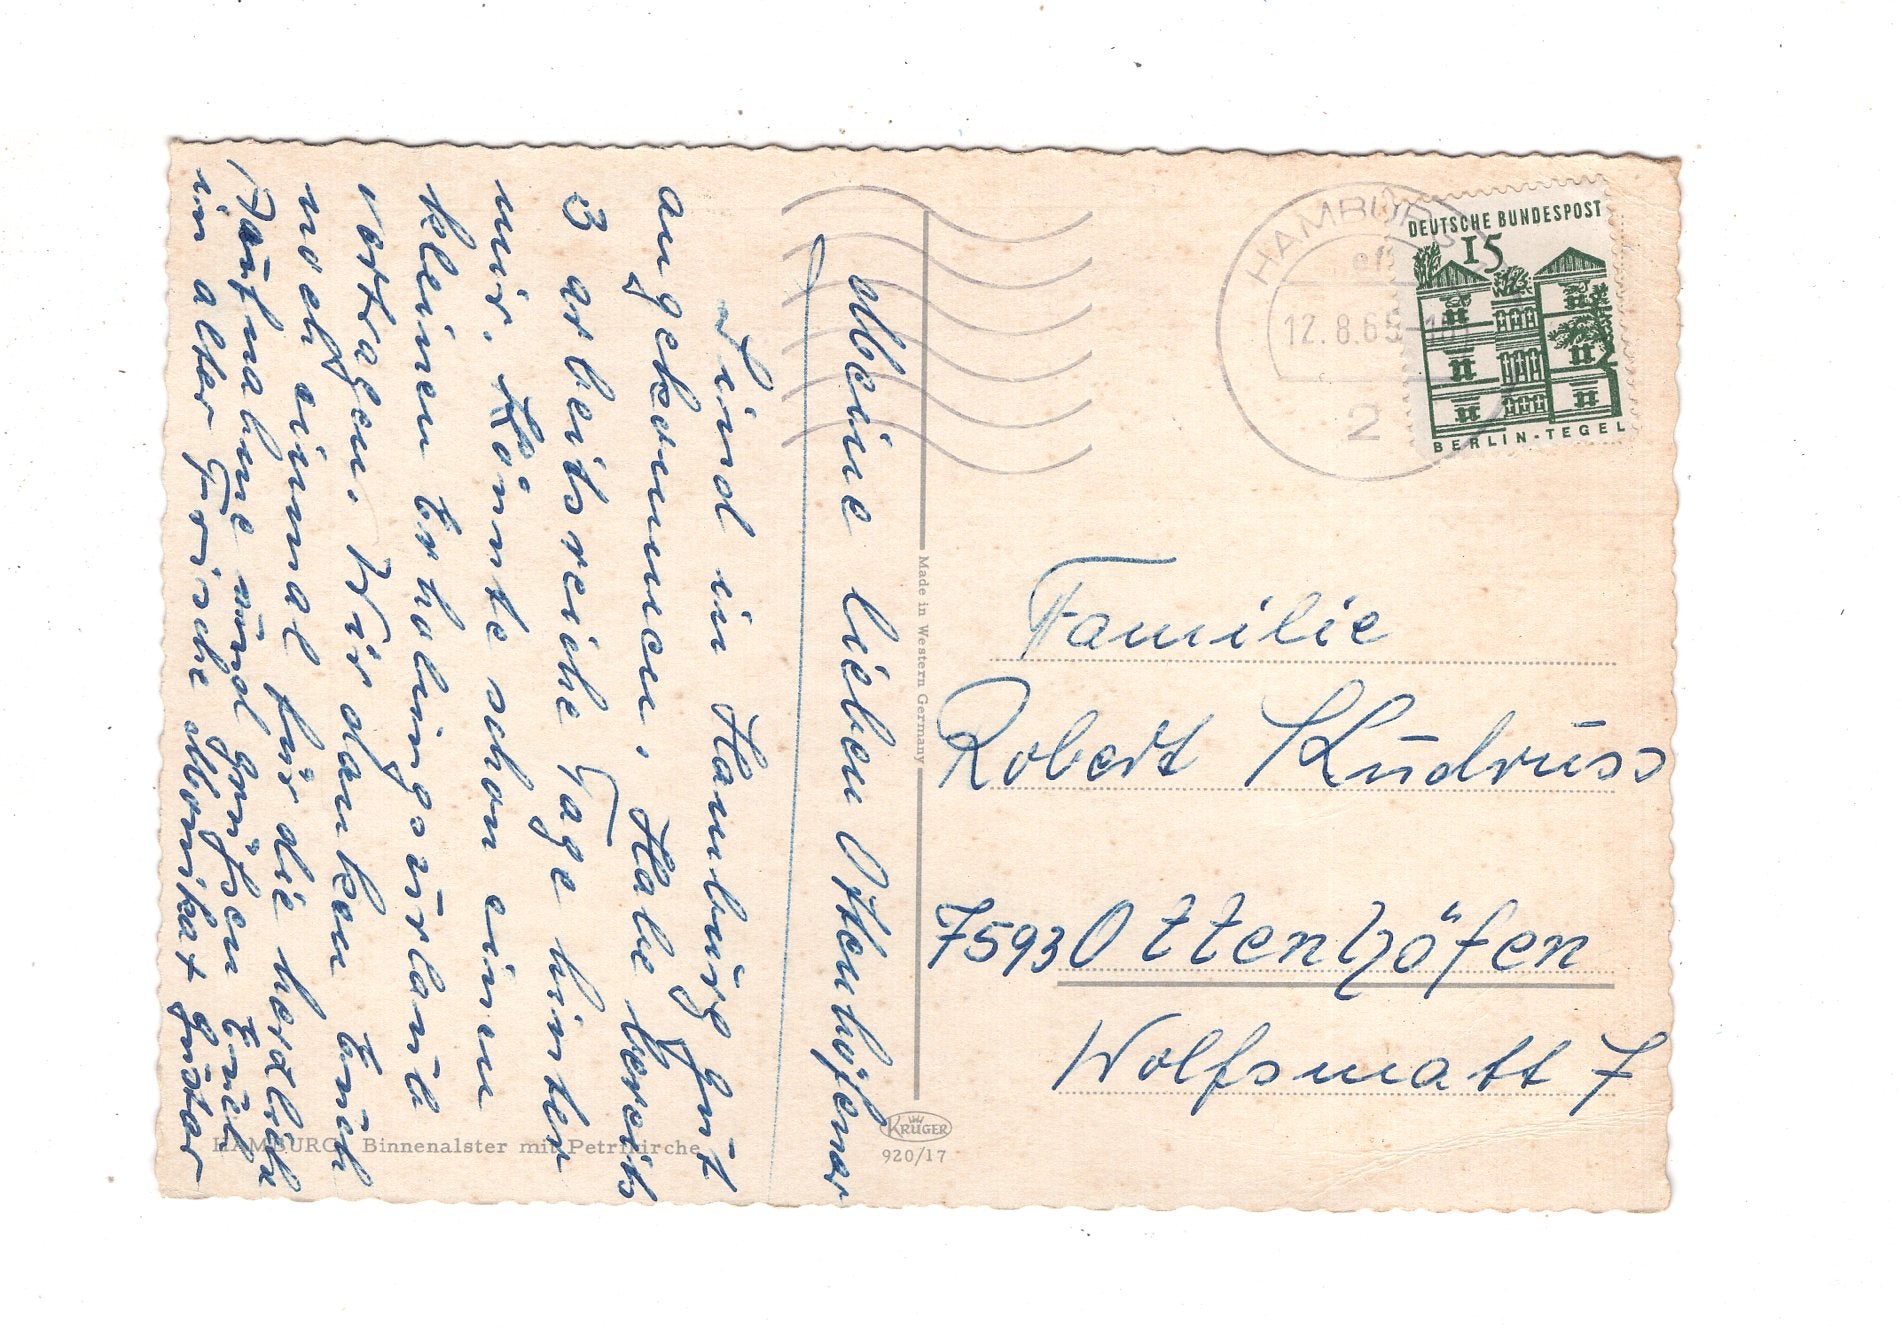 Meine lieben Ottenhöfener
Sind in Hamburg gut
angekommen. Habe bereits
3 arbeitsreiche Tage hinter
mir. Könnte schon einen
kleinen Erholungsurlaub
vertragen. Wir danken Euch
noch einmal für die herzliche
Aufnahme und grüßen Euch
in alter Frische Monika +
HAMBURG, Binnenalster mit Petrikirche
Made in Western Germany
KRÜGER
920/17
HAMBURG
12.8.65
2
DEUTSCHE BUNDESPOST
15
BERLIN-TEGEL
Familie
Robert
7593 Ottenhöfen
Wolfsmatt 7